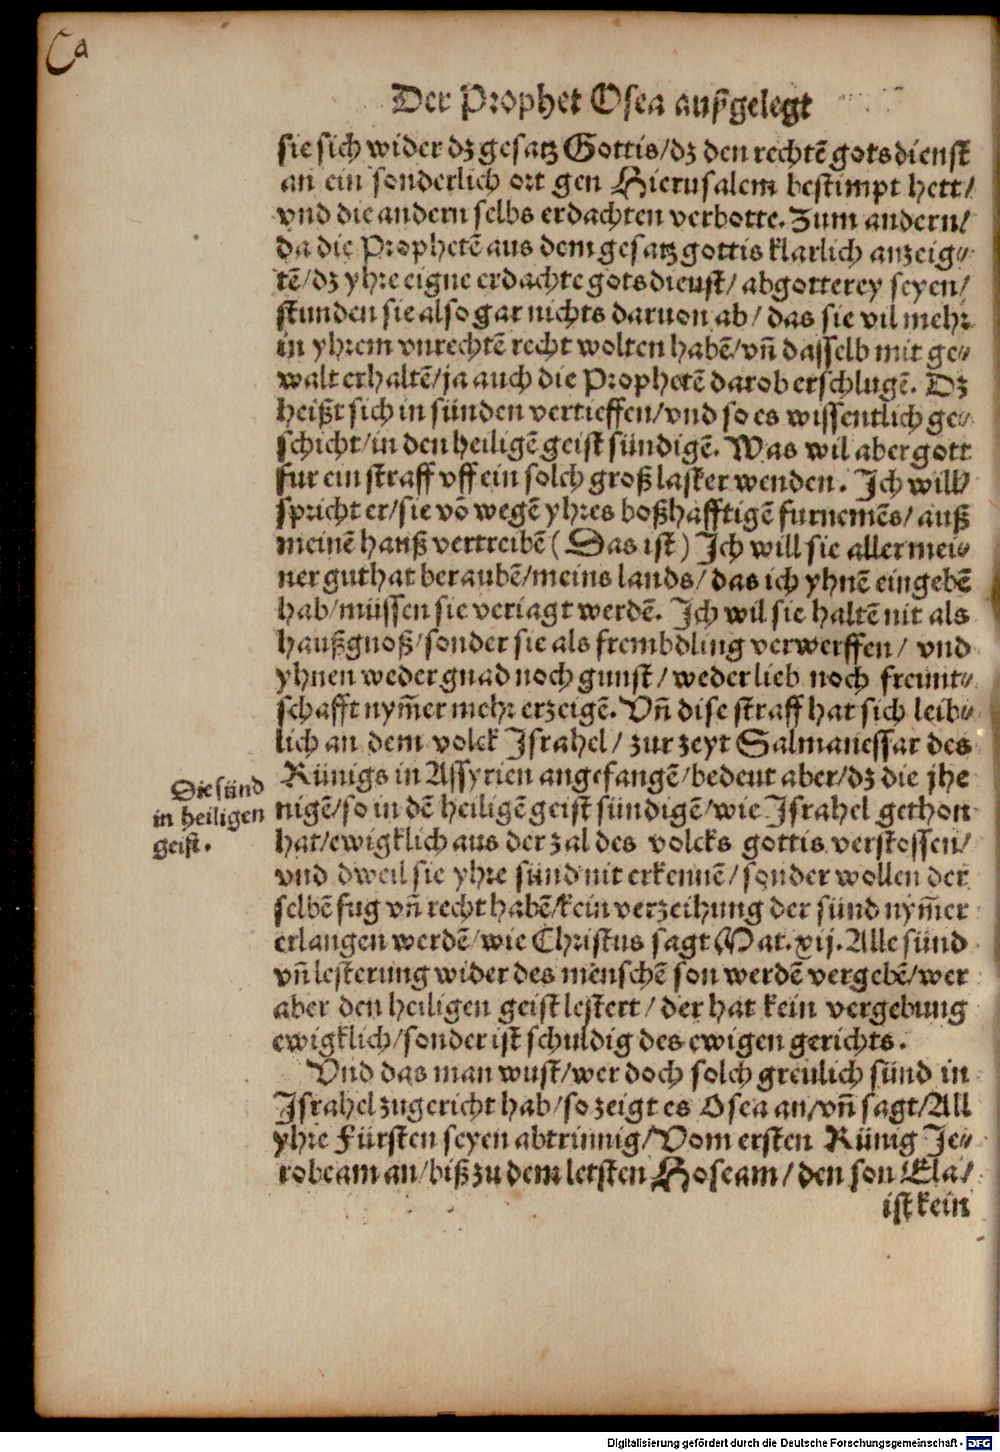 Ca
Der Prophet Osea außgelegt
sie sich wider dz gesatz Gottis/dz den rechtē gotsdienst
an ein sonderlich ort gen Hierusalem bestimpt hett/
vnd die andern selbs erdachten verbotte. Zum andern/
da die Prophetē aus dem gesatz gottis klarlich anzeig⸗
tē/dz yhre eigne erdachte gotsdienst/ abgotterey seyen/
stunden sie also gar nichts daruon ab/ das sie vil mehr
in yhrem vnrechtē recht wolten habē/vñ dasselb mit ge⸗
walt erhaltē/ja auch die Prophetē darob erschlugē. Dz
heißt sich in sünden vertieffen/vnd so es wissentlich ge⸗
schicht/in den heiligē geist sündigē. Was wil aber gott
fur ein straff vff ein solch groß laster wenden. Ich will/
spricht er/sie vō wegē yhres boßhafftigē furnemēs/ auß
meinē hauß vertreibē (Das ist) Ich will sie aller mei⸗
ner guthat beraubē/meins lands/ das ich yhnē eingebē
hab/müssen sie veriagt werdē. Ich wil sie haltē nit als
haußgnoß/sonder sie als frembdling verwerffen/ vnd
yhnen weder gnad noch gunst/ weder lieb noch freunt⸗
schafft nym̄er mehr erzeigē. Vñ dise straff hat sich leib⸗
lich an dem volck Israhel/ zur zeyt Salmanessar des
Künigs in Assyrien angefangē/bedeut aber/dz die jhe
nigē/so in dē heiligē geist sündigē/wie Israhel gethon
hat/ewigklich aus der zal des volcks gottis verstossen/
vnd dweil sie yhre sünd nit erkennē/ sonder wollen der
selbē fug vñ recht habē/kein verzeihung der sünd nym̄er
erlangen werdē/wie Christus sagt Mat.xij. Alle sünd
vñ lesterung wider des menschē son werdē vergebē/wer
aber den heiligen geist lestert/ der hat kein vergebung
ewigklich/sonder ist schuldig des ewigen gerichts.
Vnd das man wust/wer doch solch greulich sünd in
Israhel zugericht hab/so zeigt es Osea an/vñ sagt/All
yhre Fürsten seyen abtrinnig/Vom ersten Künig Je⸗
robeam an/biß zu dem letsten Hoseam/ den son Ela/
ist kein
Die sünd
in heiligen
geist.
Digitalisierung gefördert durch die Deutsche Forschungsgemeinschaft - DFG